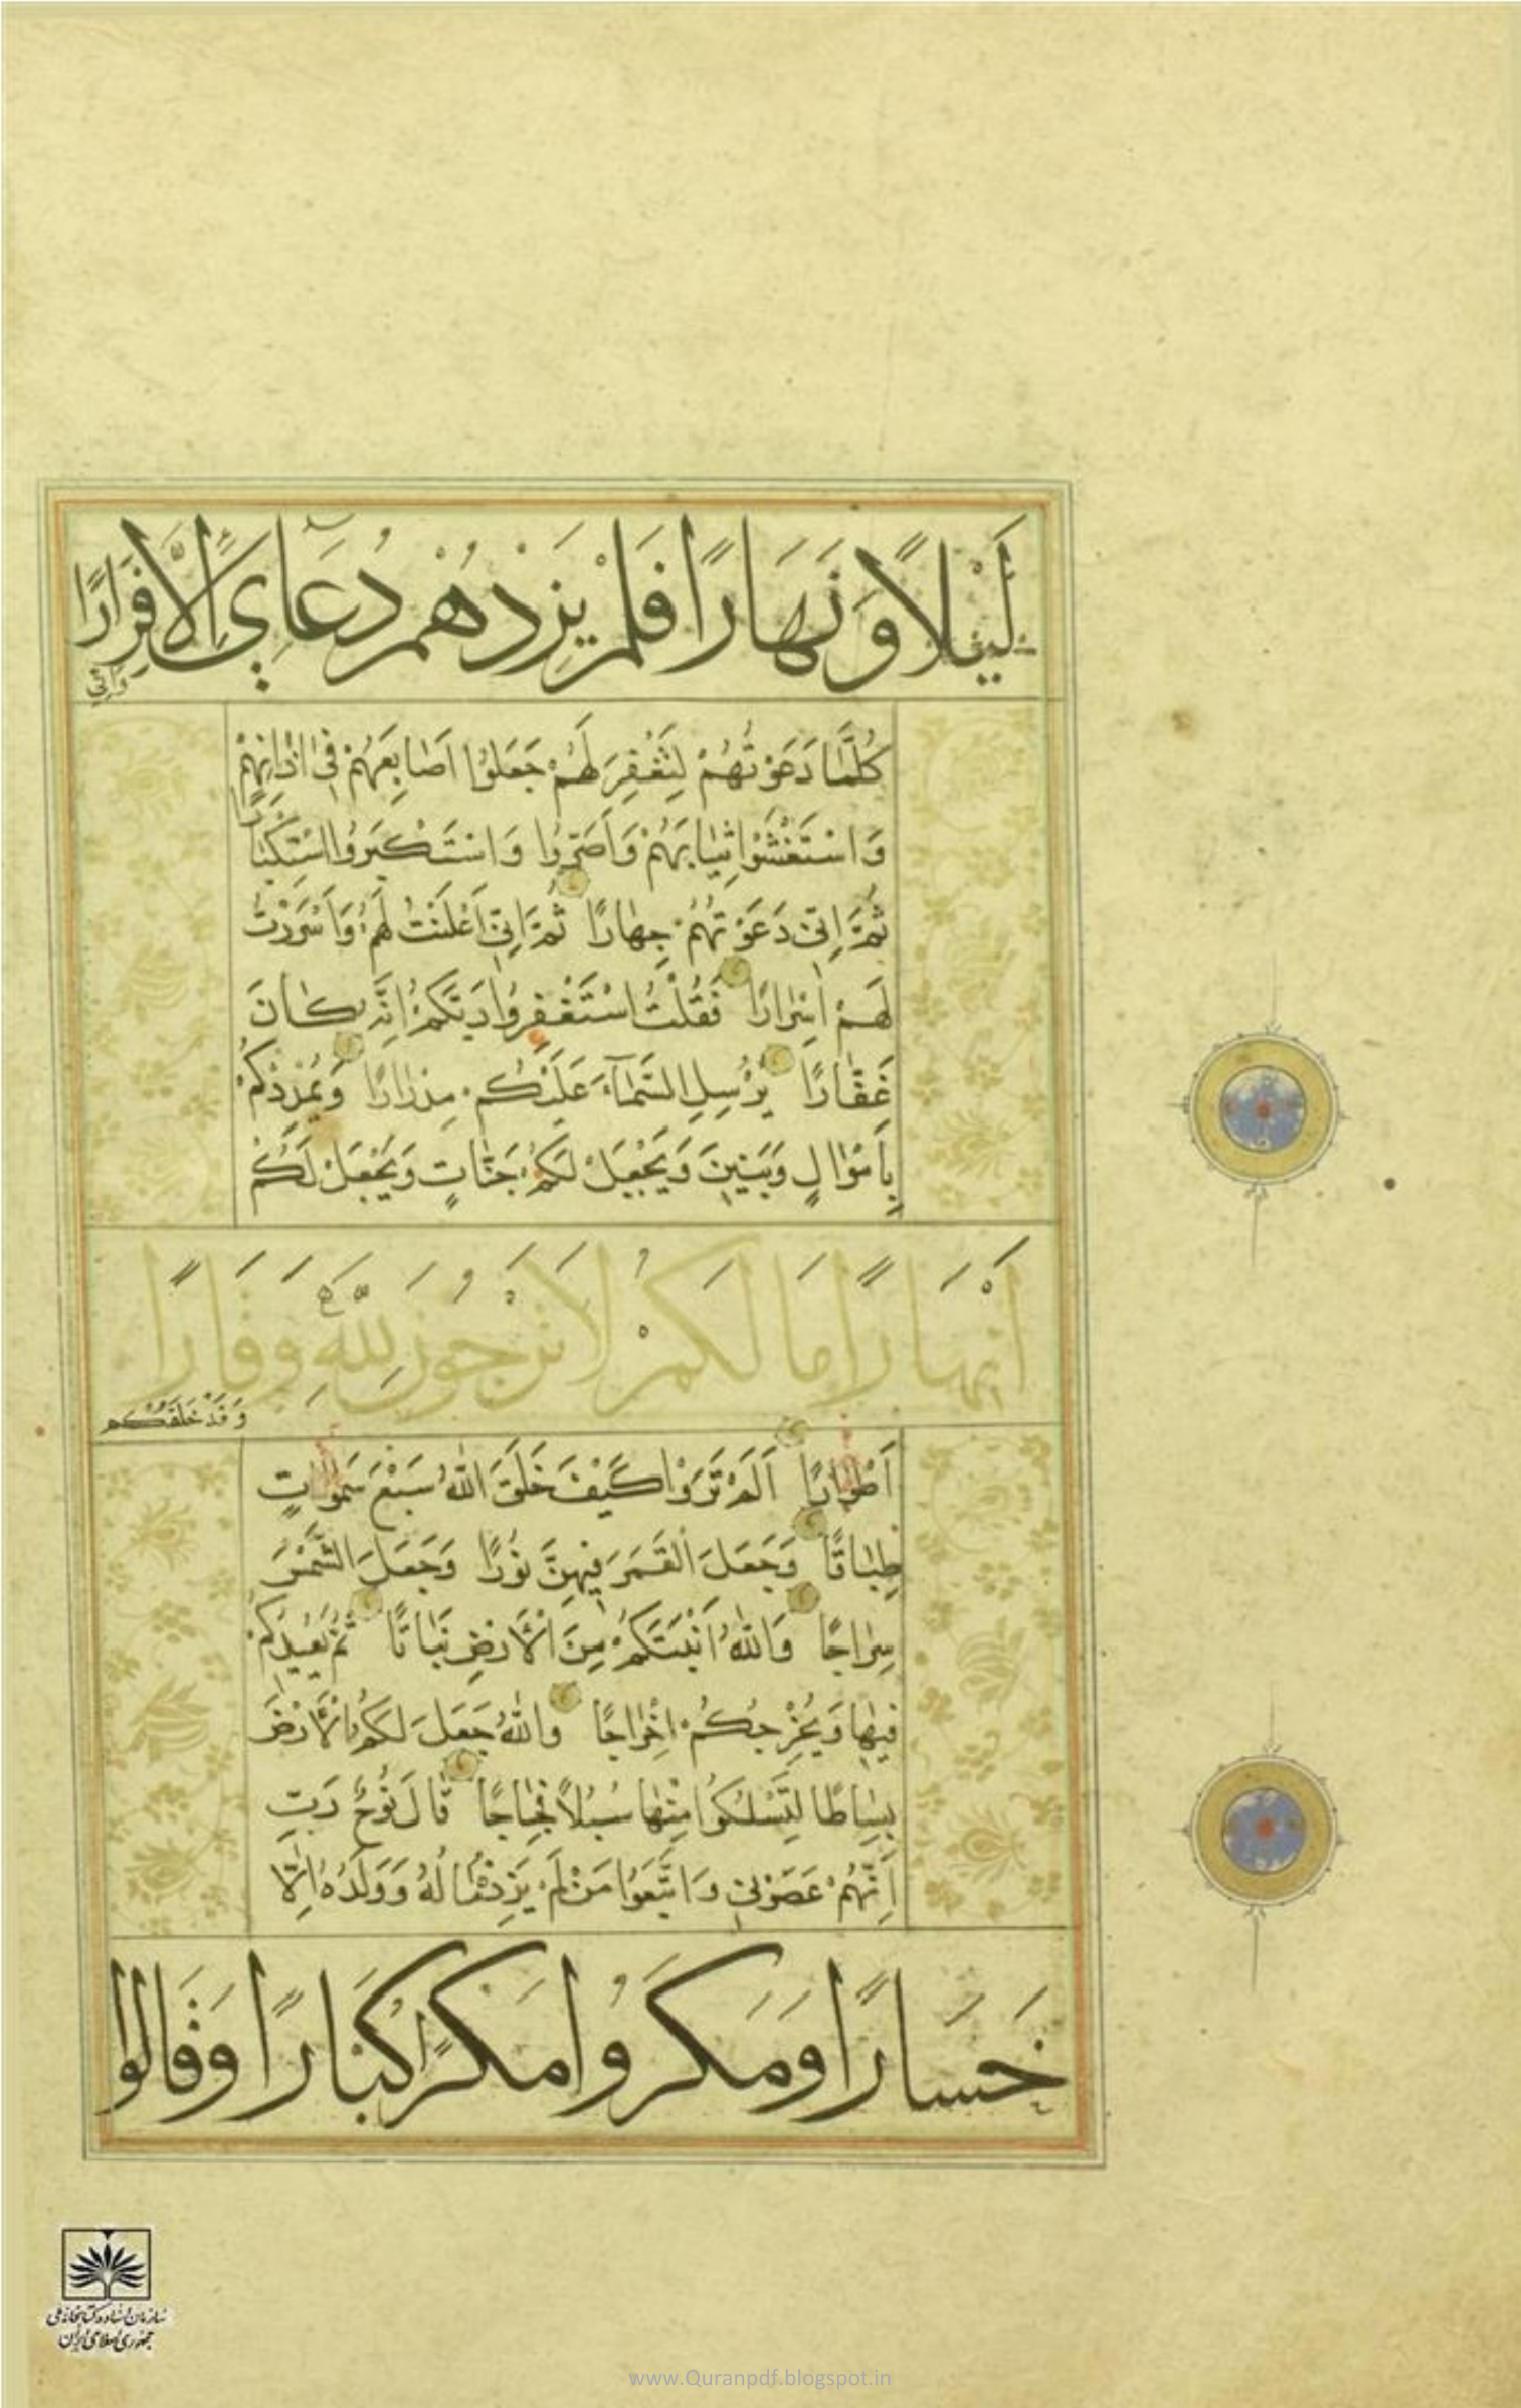 لَيْلًا وَنَهَارًا فَلَمْ يَزِدْهُمْ دُعَآئِي إِلَّا فِرَارًا
وَاِنّي
كُلَّمَا دَعَوْتُهُمْ لِتَغْفِرَ لَهُمْ جَعَلُوا اَصَابِعَهُمْ فِي اٰذَانِهِمْ
وَاسْتَغْشَوْا ثِيَابَهُمْ وَاَصَرُّوا وَاسْتَكْبَرُوا اسْتِكْبَارًا
ثُمَّ اِنِّي دَعَوْتُهُمْ جِهَارًا ثُمَّ اِنِّي اَعْلَنْتُ لَهُمْ وَاَسْرَرْتُ
لَهُمْ اِسْرَارًا فَقُلْتُ اسْتَغْفِرُوا رَبَّكُمْ اِنَّهُ كَانَ
غَفَّارًا يُرْسِلِ السَّمَآءَ عَلَيْكُمْ مِدْرَارًا وَيُمْدِدْكُمْ
بِاَمْوَالٍ وَبَنِينَ وَيَجْعَلْ لَكُمْ جَنَّاتٍ وَيَجْعَلْ لَكُمْ
اَنْهَارًا مَا لَكُمْ لَا تَرْجُونَ لِلّٰهِ وَقَارًا
وَقَدْ خَلَقَكُمْ
اَطْوَارًا اَلَمْ تَرَوْا كَيْفَ خَلَقَ اللّٰهُ سَبْعَ سَمٰوَاتٍ
طِبَاقًا وَجَعَلَ الْقَمَرَ فِيهِنَّ نُورًا وَجَعَلَ الشَّمْسَ
سِرَاجًا وَاللّٰهُ اَنْبَتَكُمْ مِنَ الْاَرْضِ نَبَاتًا ثُمَّ يُعِيدُكُمْ
فِيهَا وَيُخْرِجُكُمْ اِخْرَاجًا وَاللّٰهُ جَعَلَ لَكُمُ الْاَرْضَ
بِسَاطًا لِتَسْلُكُوا مِنْهَا سُبُلًا فِجَاجًا قَالَ نُوحٌ رَبِّ
اِنَّهُمْ عَصَوْنِي وَاتَّبَعُوا مَنْ لَمْ يَزِدْهُ مَالُهُ وَوَلَدُهُ اِلَّا
خَسَارًا وَمَكَرُوا مَكْرًا كُبَّارًا وَقَالُوا
سازمان اسناد و کتابخانه ملی
جمهوری اسلامی ایران
www.Quranpdf.blogspot.in